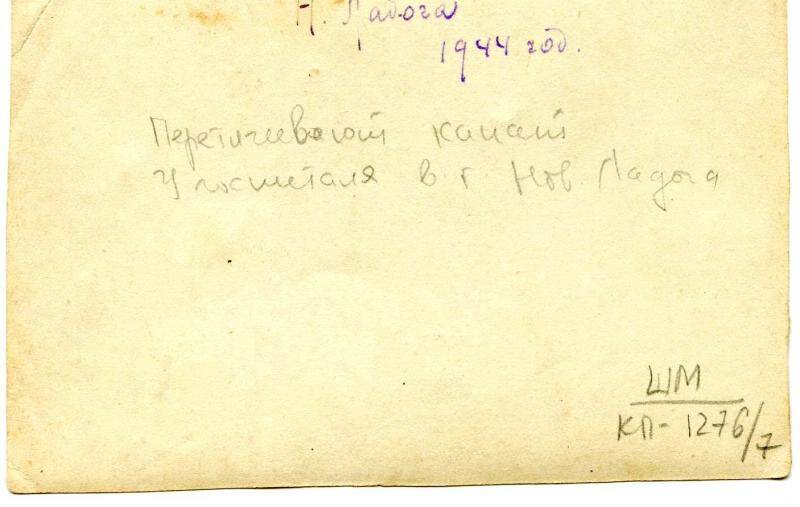 Н. Ладога
1944 год.
Перетягивают канат
У госпиталя в г. Нов. Ладога
ШМ
КП-1276/7